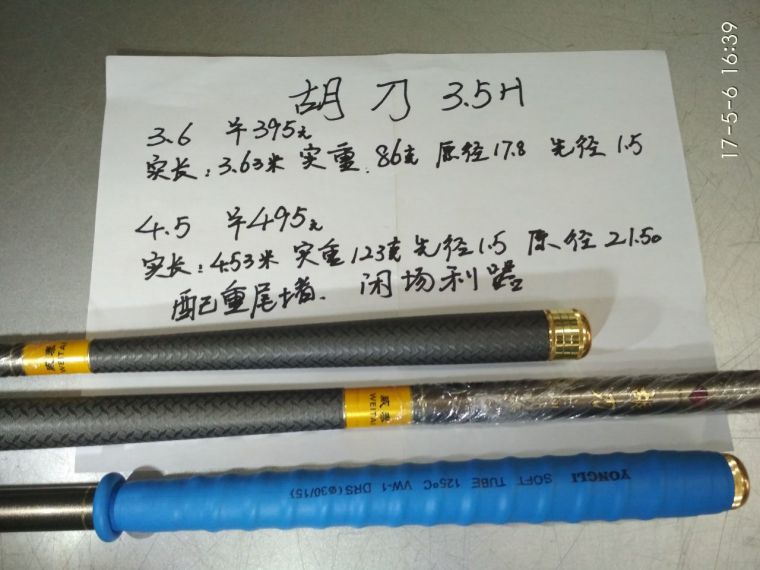 胡刀 3.5H
3.6 ¥395元
实长:3.63米 实重:86克 原径17.8 先径1.5
4.5 ¥495元
实长:4.53米 实重123克 先径1.5 原径21.50
配配重尾堵. 闲场利器
威泰
WEITAI
威泰
WEITAI
YONGLI SOFT TUBE 125°C VW-1 DRS(Φ30/15)
17-5-6 16:39